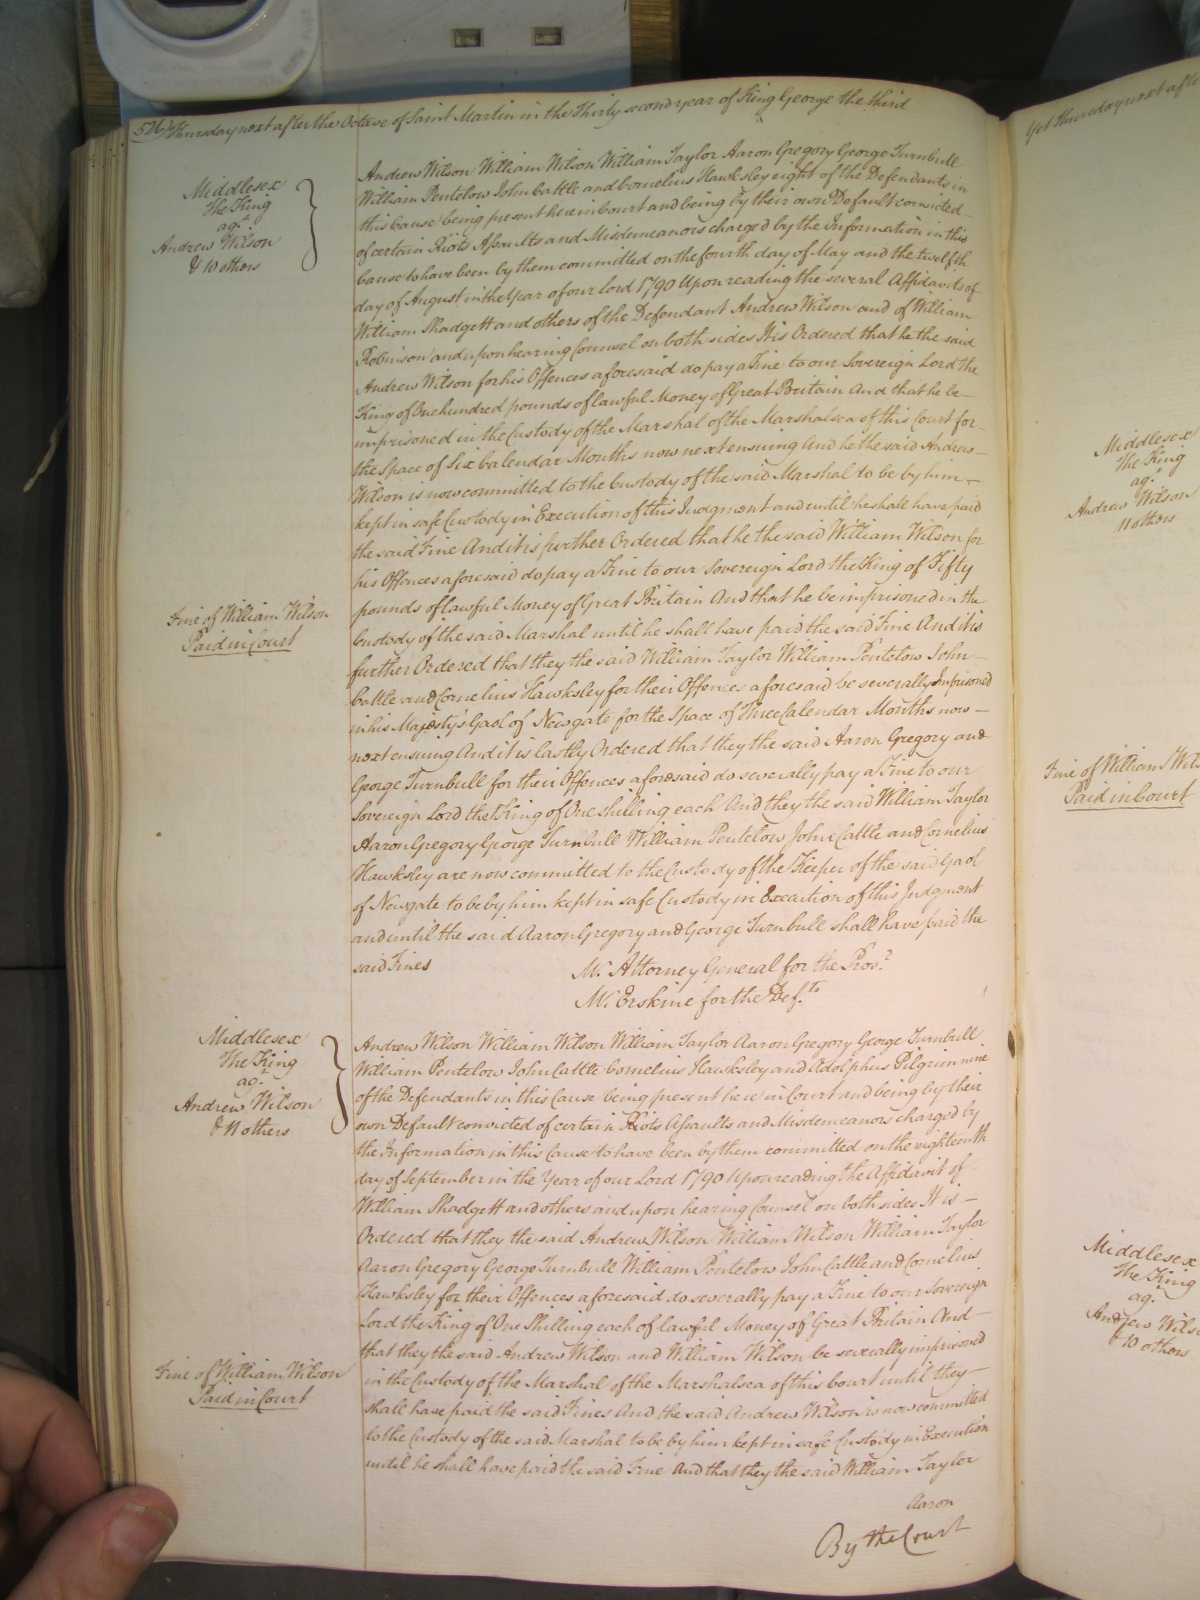 526 Thursday next after the Octave of Saint Martin in the Thirty second year of King George the third
Middlesex
The King
agt
Andrew Wilson
& 10 others
Andrew Wilson William Wilson William Taylor Aaron Gregory George Turnbull
William Pentelow John Cattle and Cornelius Hawksley eight of the Defendants in
this Cause being present here in Court and being by their own Default convicted
of certain Riots Assaults and Misdemeanors charged by the Information in this
Cause to have been by them committed on the fourth day of May and the twelfth
day of August in the Year of our Lord 1790 Upon reading the several Affidavits of
William Shadgett and others of the Defendant Andrew Wilson and of William
Robinson and upon hearing Counsel on both sides It is Ordered that he the said
Andrew Wilson for his Offences aforesaid do pay a Fine to our Sovereign Lord the
King of One hundred pounds of lawful Money of Great Britain And that he be
imprisoned in the Custody of the Marshal of the Marshalsea of this Court for
the Space of Six Calendar Months now next ensuing And he the said Andrew
Wilson is now committed to the Custody of the said Marshal to be by him
kept in safe Custody in Execution of this Judgment and until he shall have paid
the said Fine And it is further Ordered that he the said William Wilson for
his Offences aforesaid do pay a Fine to our Sovereign Lord the King of Fifty
Fine of William Wilson
Paid in Court
pounds of lawful Money of Great Britain And that he be imprisoned in the
Custody of the said Marshal until he shall have paid the said Fine And it is
further Ordered that they the said William Taylor William Pentelow John
Cattle and Cornelius Hawksley for their Offences aforesaid be severally Imprisoned
in his Majesty's Gaol of Newgate for the Space of Three Calendar Months now
next ensuing And it is lastly Ordered that they the said Aaron Gregory and
George Turnbull for their Offences aforesaid do severally pay a Fine to our
Sovereign Lord the King of One shilling each And they the said William Taylor
Aaron Gregory George Turnbull William Pentelow John Cattle and Cornelius
Hawksley are now committed to the Custody of the Keeper of the said Gaol
of Newgate to be by him kept in safe Custody in Execution of this Judgment
and until the said Aaron Gregory and George Turnbull shall have paid the
said Fines
Mr. Attorney General for the Pros.r
Mr. Erskine for the Def.ts
Middlesex
The King
agt
Andrew Wilson
& 11 others
Andrew Wilson William Wilson William Taylor Aaron Gregory George Turnbull
William Pentelow John Cattle Cornelius Hawksley and Adolphus Pilgrim nine
of the Defendants in this Cause being present here in Court and being by their
own Default convicted of certain Riots Assaults and Misdemeanors charged by
the Information in this Cause to have been by them committed on the eighteenth
day of September in the Year of our Lord 1790 Upon reading the Affidavit of
William Shadgett and others and upon hearing Counsel on both sides It is
Ordered that they the said Andrew Wilson William Wilson William Taylor
Aaron Gregory George Turnbull William Pentelow John Cattle and Cornelius
Hawksley for their Offences aforesaid do severally pay a Fine to our Sovereign
Lord the King of One Shilling each of lawful Money of Great Britain And
that they the said Andrew Wilson and William Wilson be severally imprisoned
Fine of William Wilson
Paid in Court
in the Custody of the Marshal of the Marshalsea of this Court until they
shall have paid the said Fines And the said Andrew Wilson is now committed
to the Custody of the said Marshal to be by him kept in safe Custody in Execution
until he shall have paid the said Fine And that they the said William Taylor
Aaron
By the Court
Yet Thursday next after
Middlesex
The King
agt
Andrew Wilson
11 others
Fine of William Wils
Paid in Court
Middlesex
The King
agt
Andrew Wilso
& 10 others